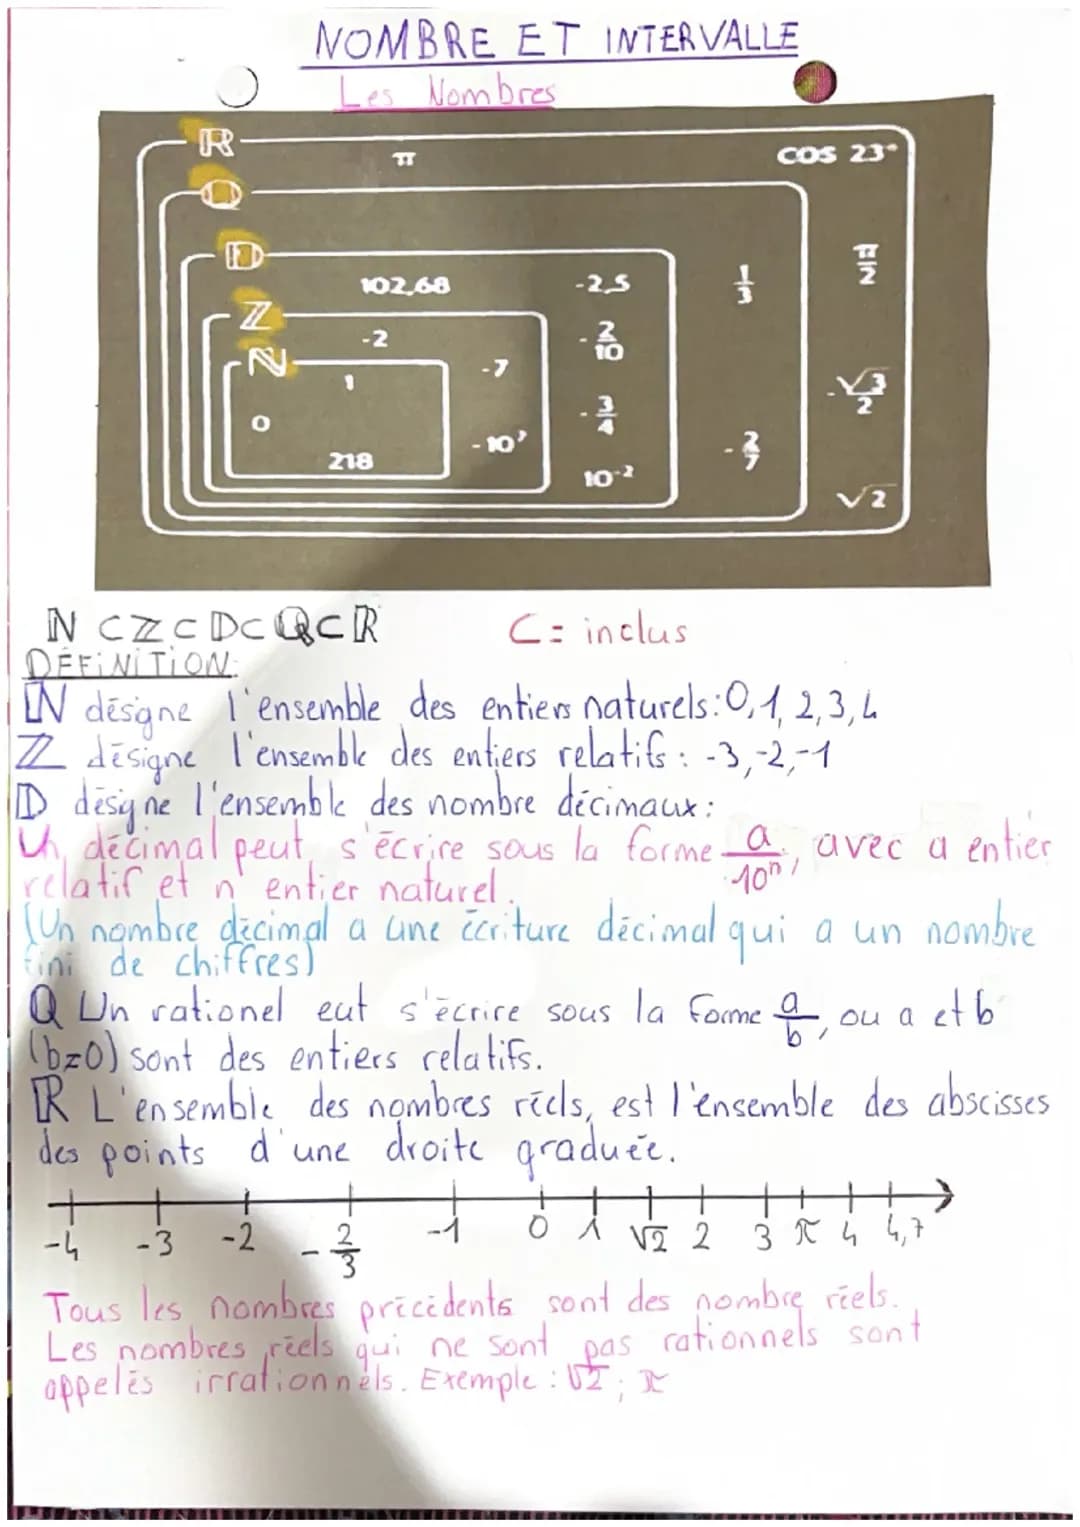 NOMBRE ET INTERVALLE
Les Nombres
ℝ π COS 23°
ℚ
𝔻
102,68 -2,5 1/3 π/2
ℤ
-2 -2/10
ℕ -7
1 -3/4 -√3/2
0 -10³ -2/7
218 10⁻²
√2
ℕ ⊂ ℤ ⊂ 𝔻 ⊂ ℚ ⊂ ℝ ⊂= inclus
DÉFINITION:
ℕ désigne l'ensemble des entiers naturels: 0, 1, 2, 3, 4
ℤ désigne l'ensemble des entiers relatifs : -3, -2, -1
𝔻 désigne l'ensemble des nombre décimaux :
Un décimal peut s'écrire sous la forme a/10ⁿ, avec a entier
relatif et n entier naturel.
(Un nombre décimal a une écriture décimal qui a un nombre
fini de chiffres)
ℚ Un rationel eut s'écrire sous la forme a/b, ou a et b
(b=0) sont des entiers relatifs.
ℝ L'ensemble des nombres réels, est l'ensemble des abscisses
des points d'une droite graduée.
-4 -3 -2 -2/3 -1 0 1 √2 2 3 π 4 4,7
Tous les nombres précédents sont des nombre réels.
Les nombres réels qui ne sont pas rationnels sont
appelés irrationnels. Exemple : √2 ; π